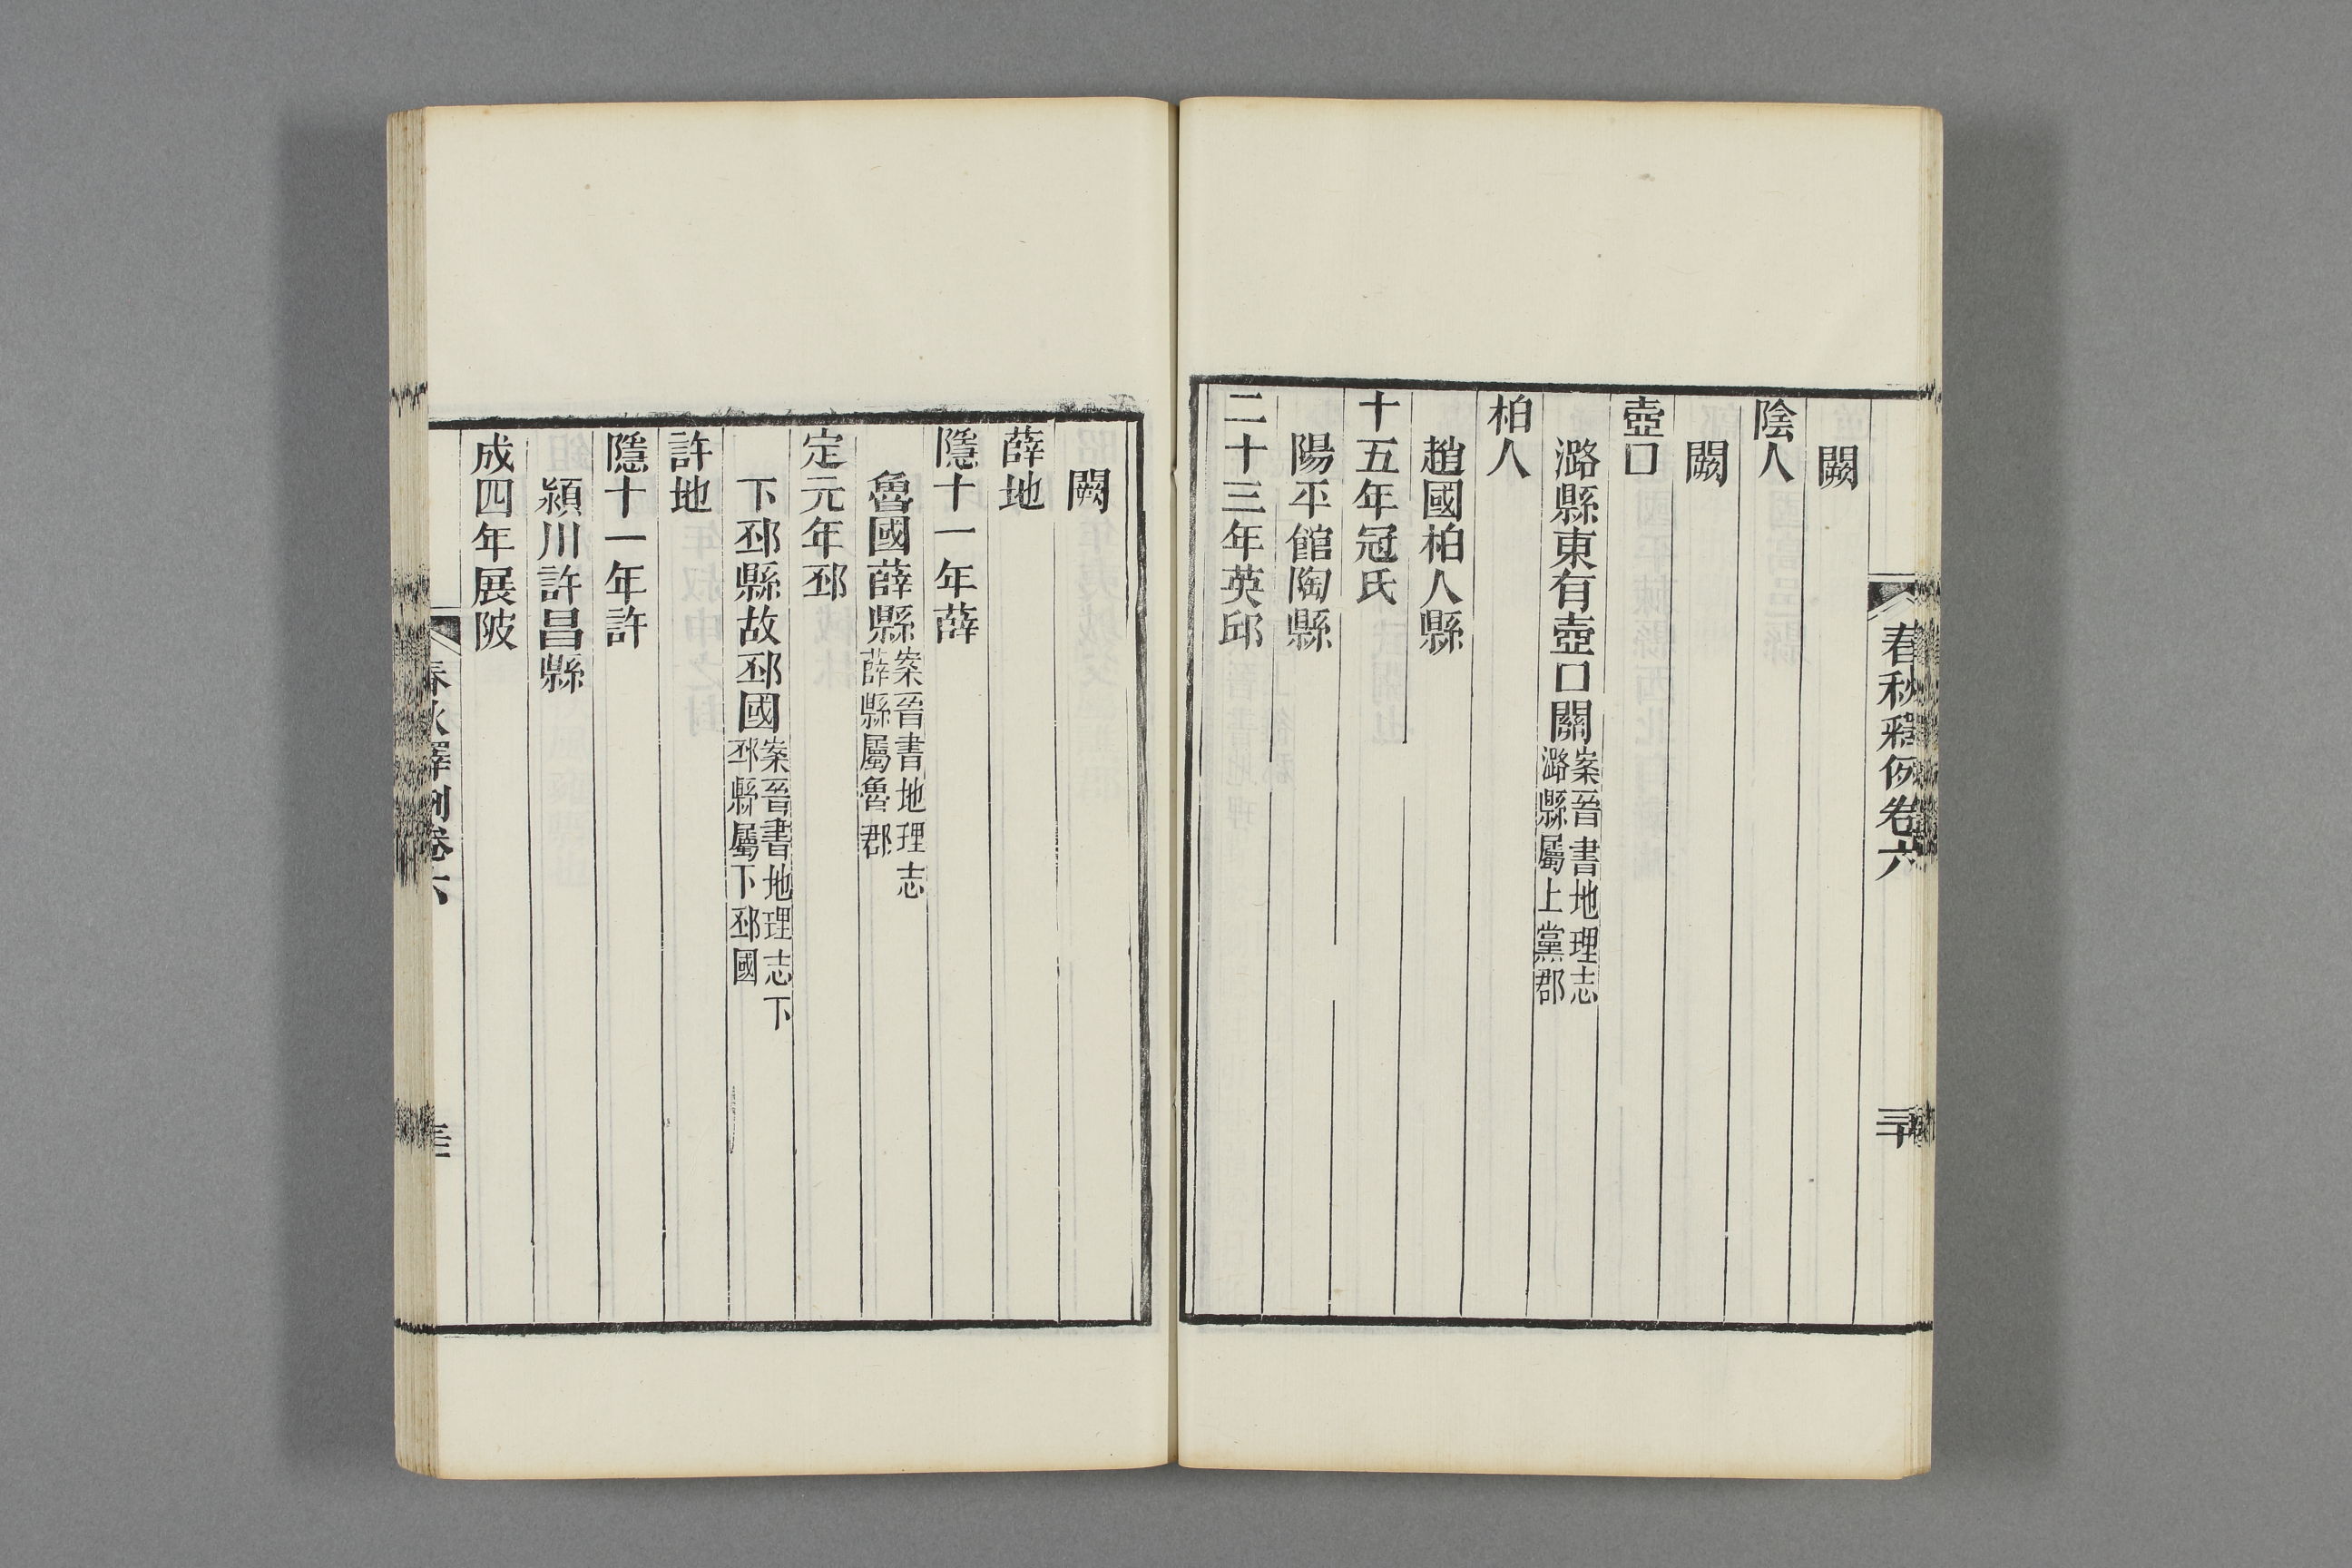 春秋釋例卷六
三十
闕
陰人
闕
壺口
潞縣東有壺口關案晉書地理志潞縣屬上黨郡
柏人
趙國柏人縣
十五年冠氏
陽平館陶縣
二十三年英邱
闕
薛地
隱十一年薛
魯國薛縣案晉書地理志薛縣屬魯郡
定元年邳
下邳縣故邳國案晉書地理志下邳縣屬下邳國
許地
隱十一年許
潁川許昌縣
成四年展陂
春秋釋例卷六